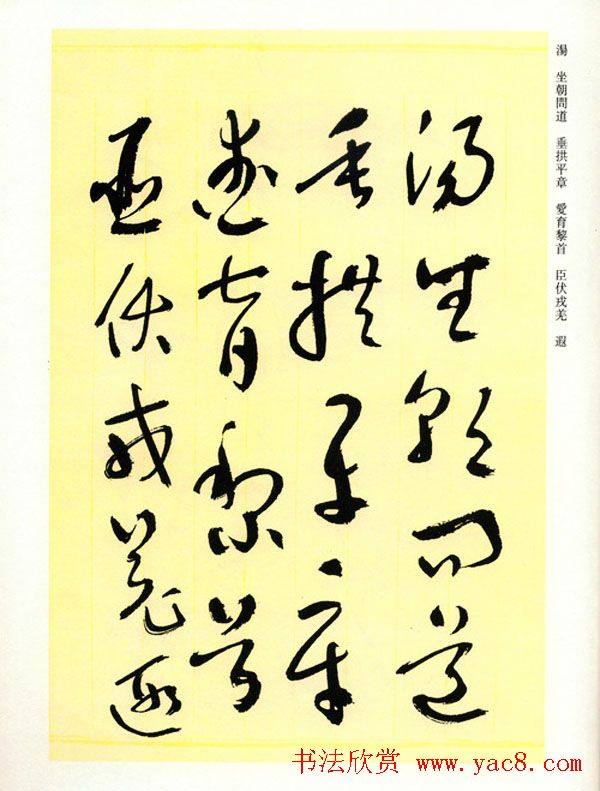 湯 坐朝問道 垂拱平章 愛育黎首 臣伏戎羌 遐
湯坐朝問道
垂拱平章
愛育黎首
臣伏戎羌遐
书法欣赏 www.yac8.com